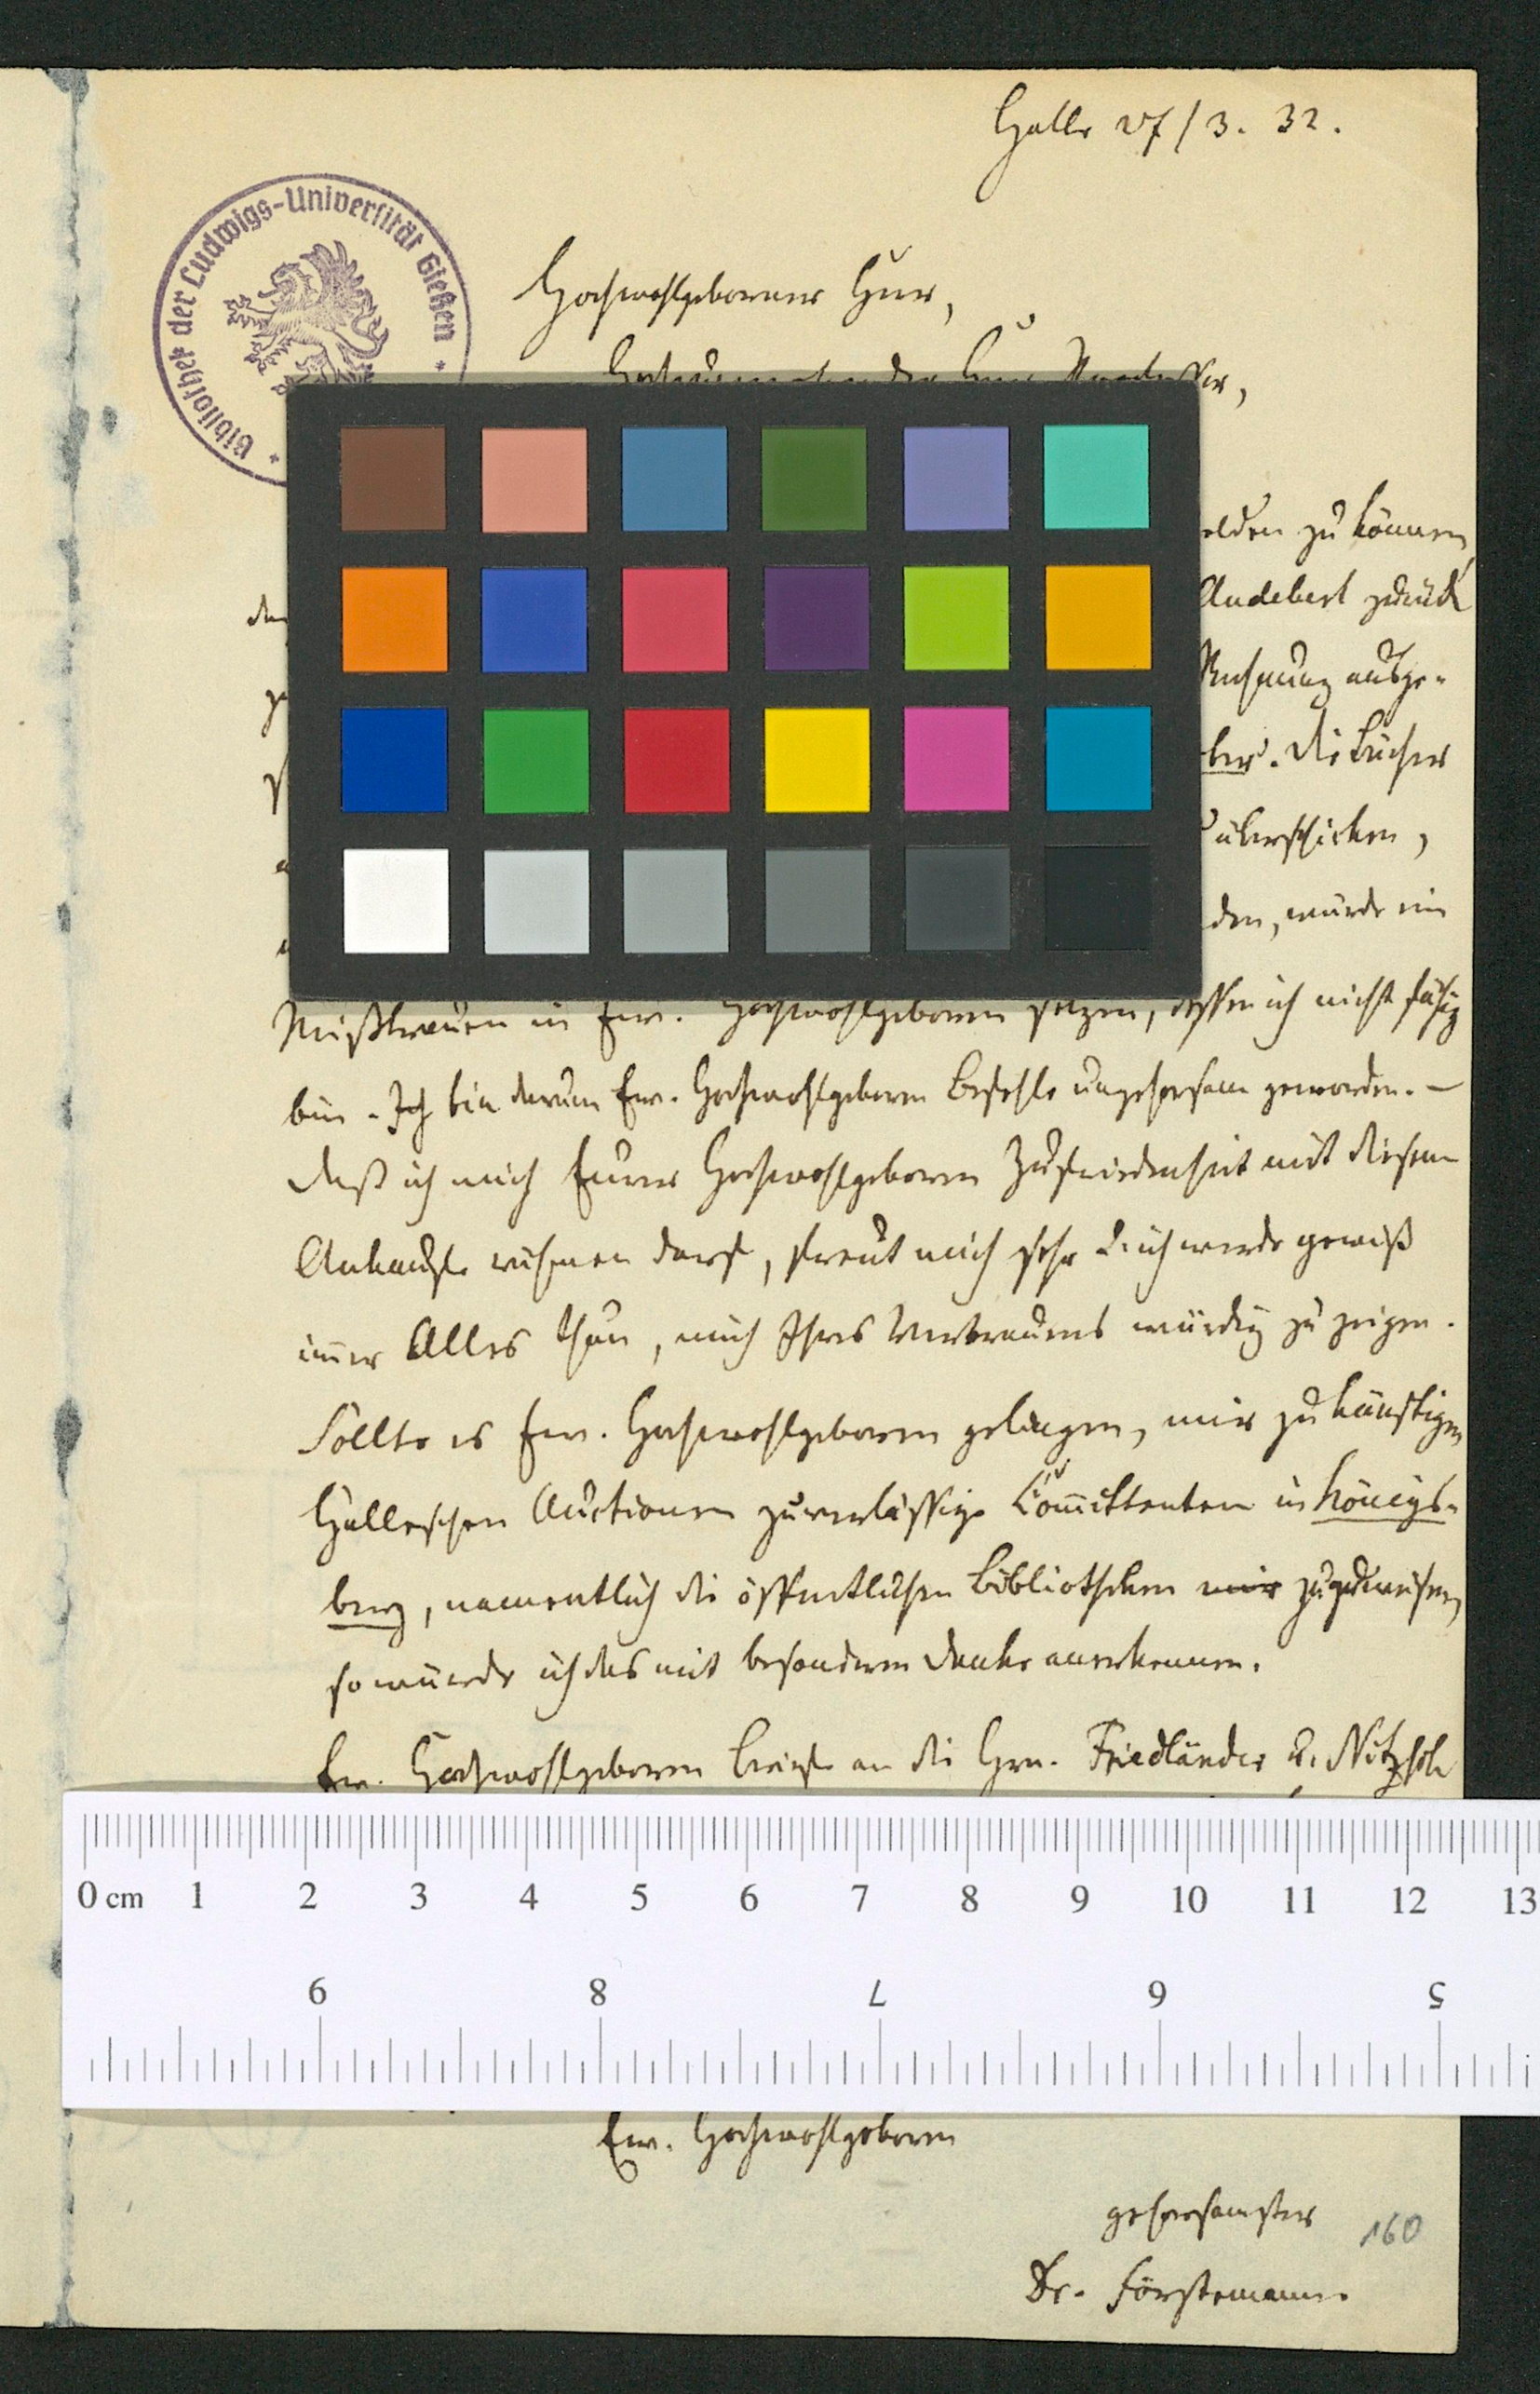 Halle 27/3. 32.
Bibliothek der Ludwigs-Universität Gießen
Hochwohlgeborner Herr,
Professor,
elden zu können,
Audebert zurück
den
Rechnung ausge-
ber. Die Bücher
überschicken,
den, würde ein
Mißtrauen in Ew. Hochwohlgeboren setzen, dessen ich nicht fähig
bin. Ich bin darum Ew. Hochwohlgeboren Befehle ungehorsam geworden. –
Daß ich mich Eurer Hochwohlgeboren Zufriedenheit mit diesem
Ankaufe rühmen darf, freut mich sehr u. ich werde gewiß
im̅er Alles thun, mich Ihres Vertrauens würdig zu zeigen.
Sollte es Ew. Hochwohlgeboren gelingen, mir zu künftigen
Halleschen Auctionen zuverlässige Com̅ittenten in Königs-
berg, namentlich die öffentlichen Bibliotheken mir zuzuweisen,
so würde ich das mit besonderem Danke anerkennen.
Ew. Hochwohlgeboren Briefe an die Hrn. Friedländer u. Nitzsch
0 cm 1 2 3 4 5 6 7 8 9 10 11 12 13
9 8 7 6 5
Ew. Hochwohlgeboren
gehorsamster
160
Dr. Förstemann.